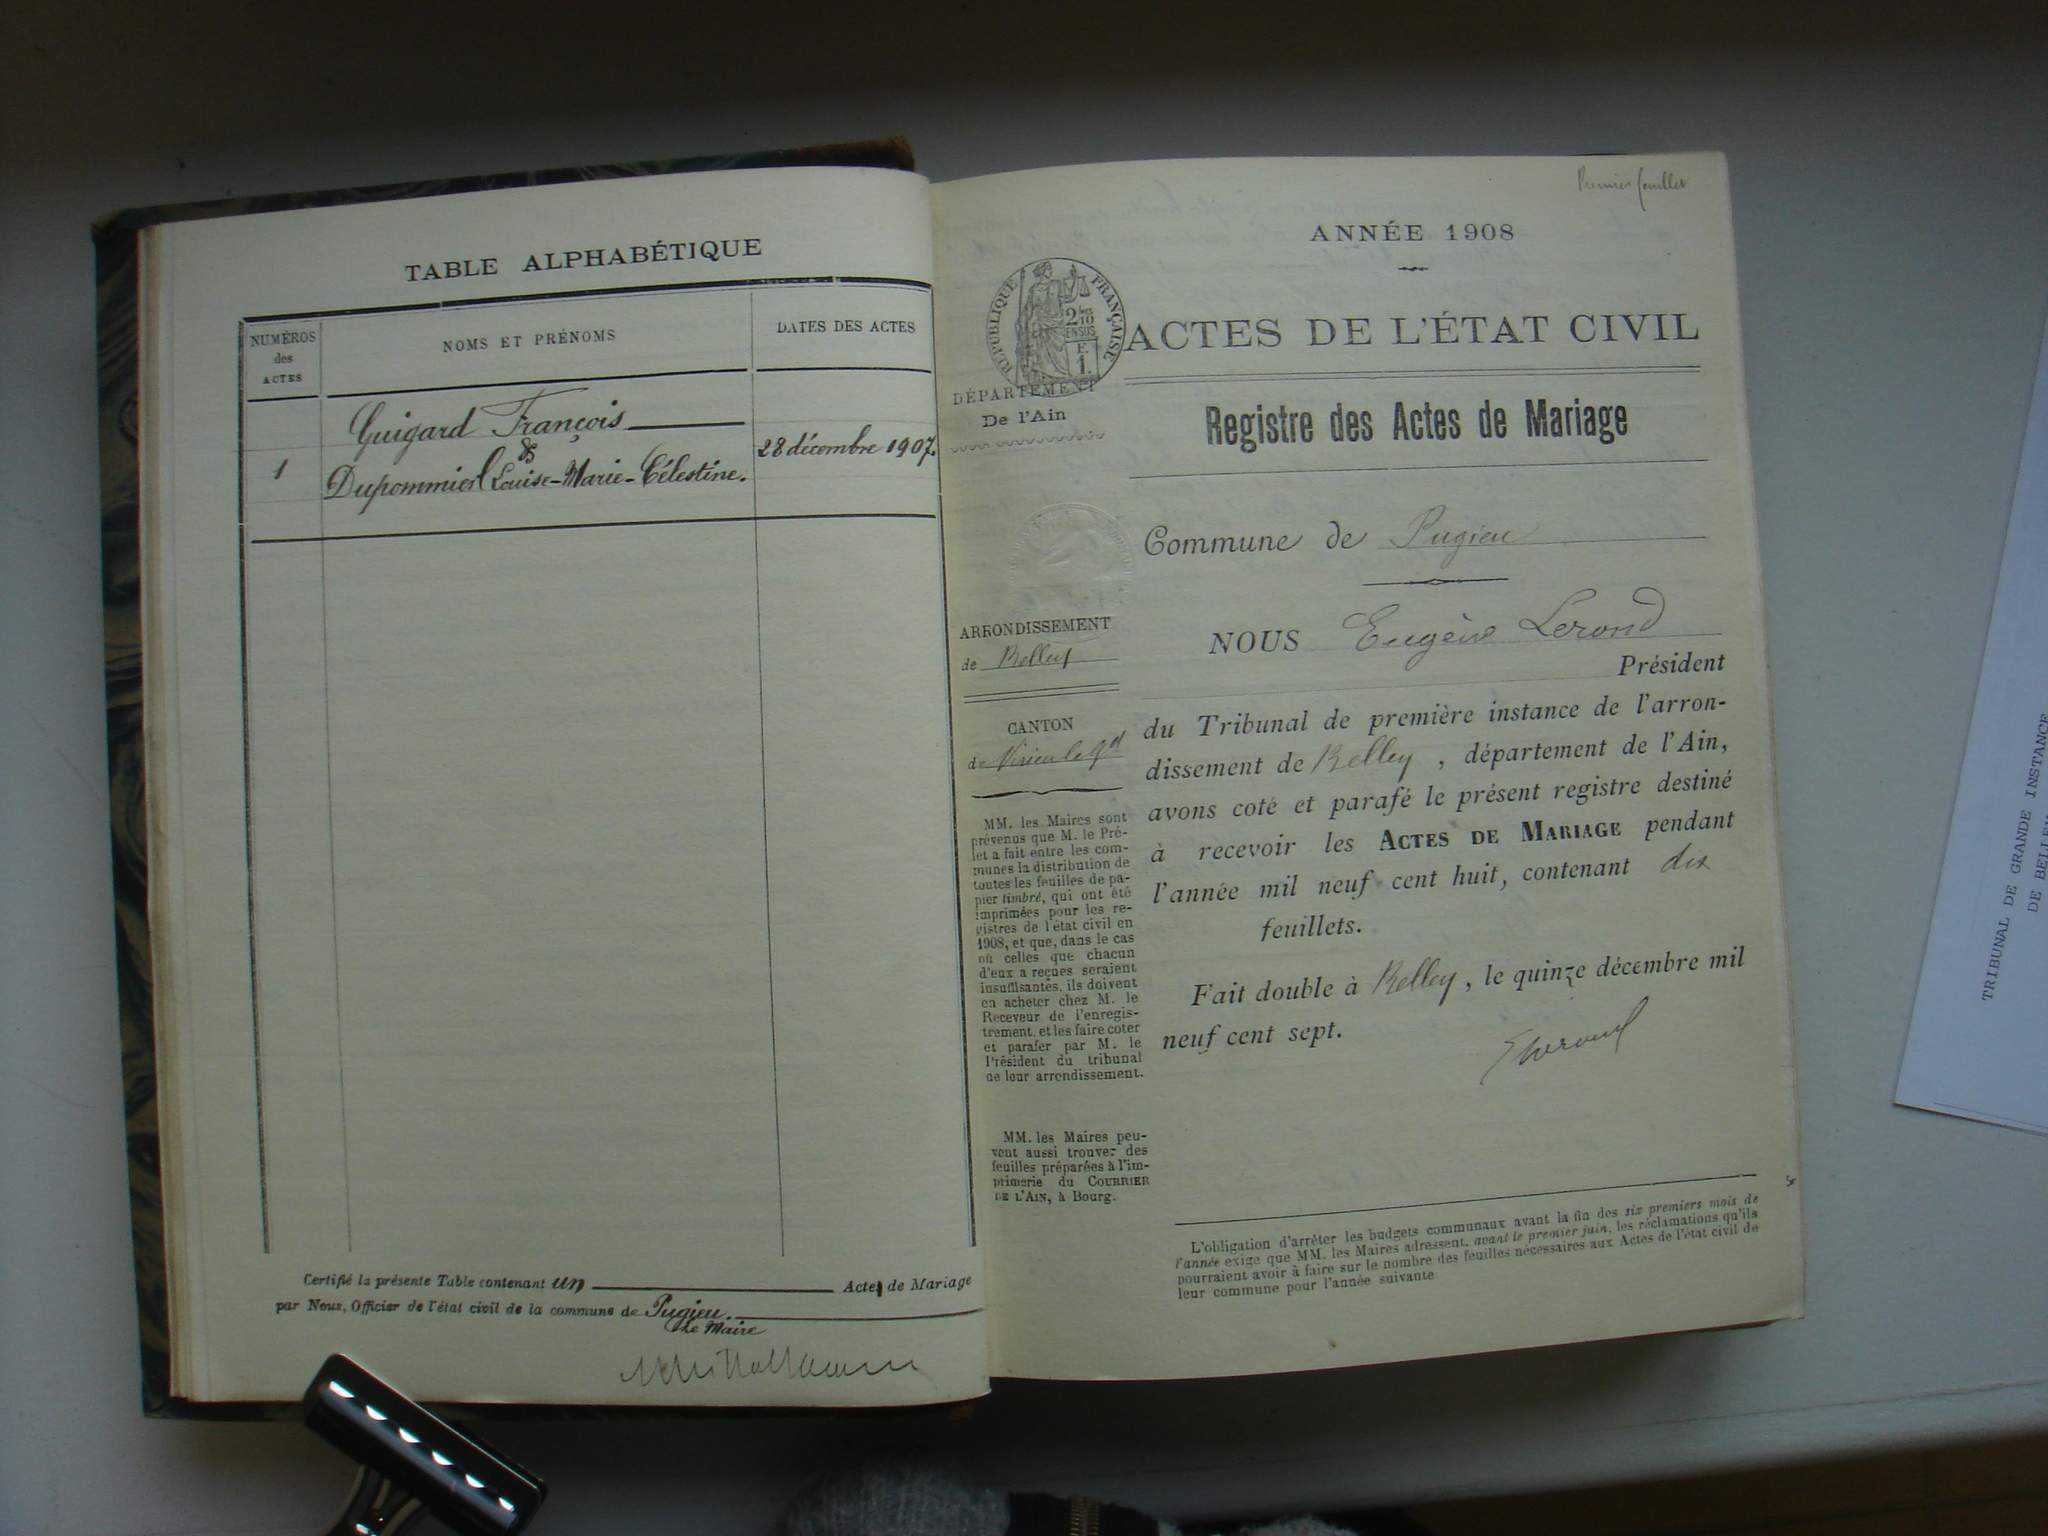 TABLE ALPHABÉTIQUE
NUMÉROS
des
ACTES
NOMS ET PRÉNOMS
DATES DES ACTES
1
Guigard François
&
Dupommier Louise-Marie-Célestine.
28 décembre 1907.
Certifié la présente Table contenant un Acte de Mariage
par Nous, Officier de l'état civil de la commune de Pugieu.
Le Maire
Premier feuillet
ANNÉE 1908
RÉPUBLIQUE FRANÇAISE
2/10
EN SUS
F.
1.
ACTES DE L'ÉTAT CIVIL
DÉPARTEMENT
De l'Ain
Registre des Actes de Mariage
Commune de Pugieu
ARRONDISSEMENT
de Belley
CANTON
de Virieu le Gd
MM. les Maires sont
prévenus que M. le Pré-
fet a fait entre les com-
munes la distribution de
toutes les feuilles de pa-
pier timbré, qui ont été
imprimées pour les re-
gistres de l'état civil en
1908, et que, dans le cas
où celles que chacun
d'eux a reçues seraient
insuffisantes, ils doivent
en acheter chez M. le
Receveur de l'enregis-
trement, et les faire coter
et parafer par M. le
Président du tribunal
de leur arrondissement.
MM. les Maires peu-
vent aussi trouver des
feuilles préparées à l'im-
primerie du COURRIER
DE L'AIN, à Bourg.
NOUS Eugène Lerond
Président
du Tribunal de première instance de l'arron-
dissement de Belley, département de l'Ain,
avons coté et parafé le présent registre destiné
à recevoir les ACTES DE MARIAGE pendant
l'année mil neuf cent huit, contenant dix
feuillets.
Fait double à Belley, le quinze décembre mil
neuf cent sept.
ELerond
L'obligation d'arrêter les budgets communaux avant la fin des six premiers mois de
l'année exige que MM. les Maires adressent, avant le premier juin, les réclamations qu'ils
pourraient avoir à faire sur le nombre des feuilles nécessaires aux Actes de l'état civil de
leur commune pour l'année suivante
TRIBUNAL DE GRANDE INSTANCE
DE BELLEY